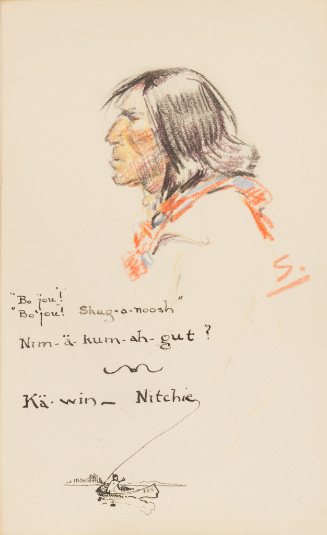 "Bo jou"!
"Bo'jou"! Shag-a-noosh"
Nim-ä-kum-ah-gut?
Kä-win– Nitchie
S.